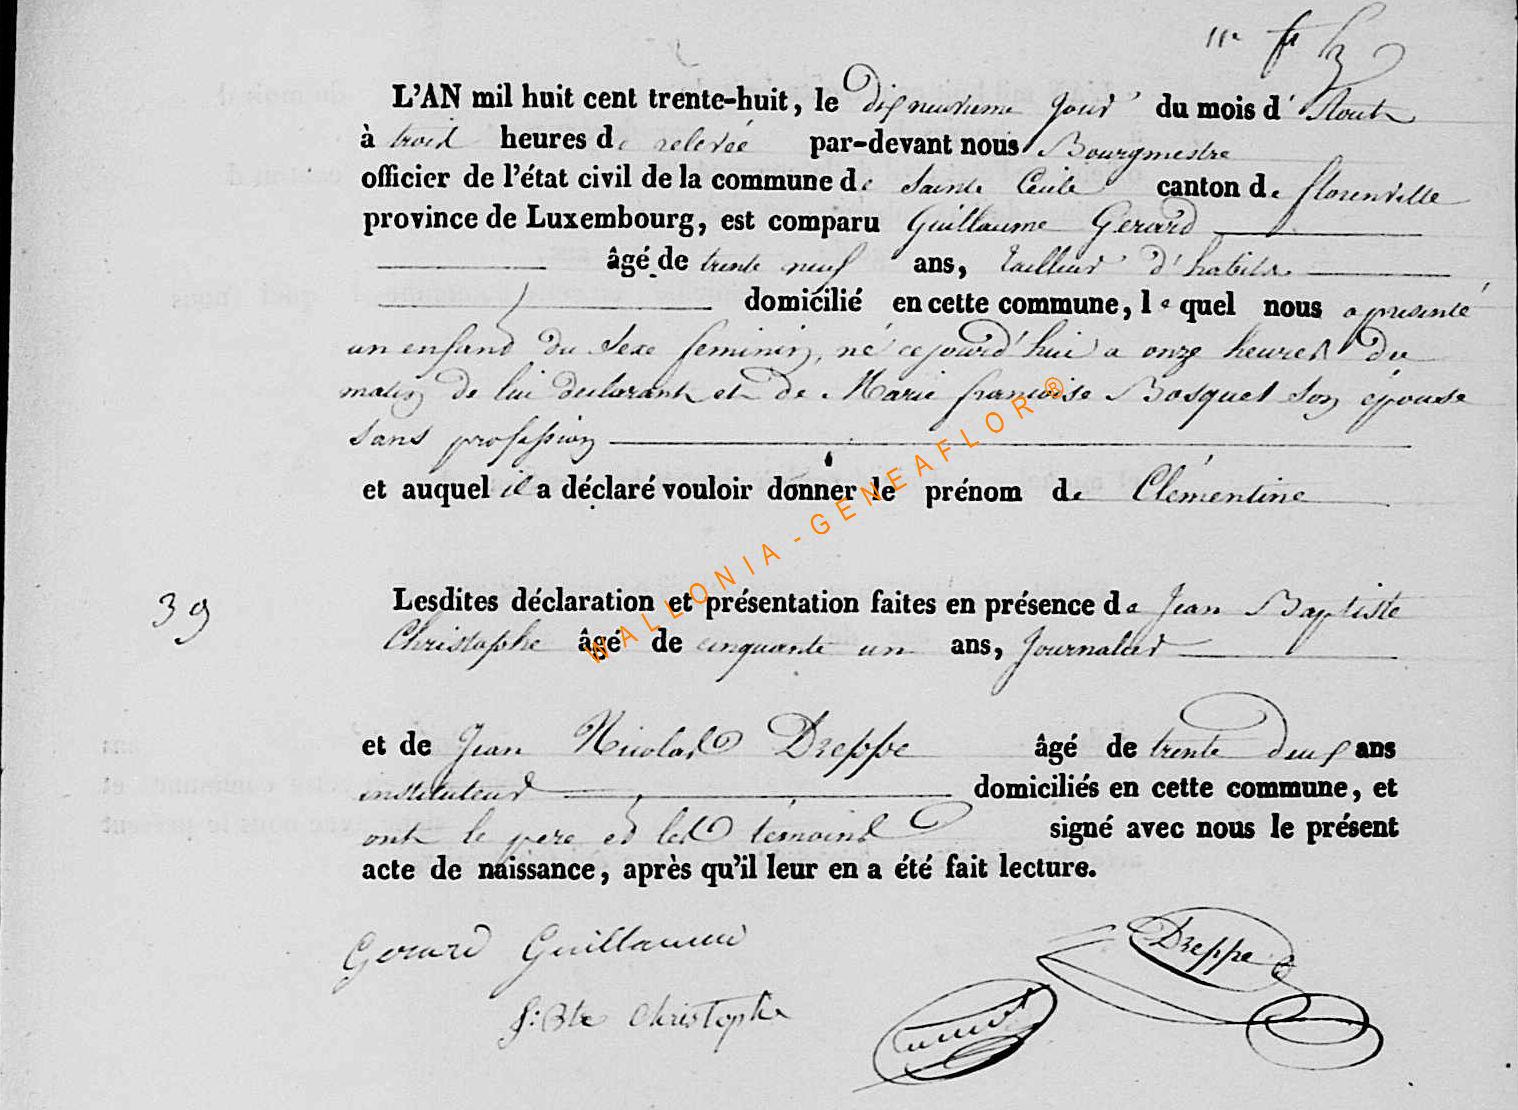 L'AN mil huit cent trente-huit, le dix neuvieme jour du mois d'Aout
à trois heures de relevée par-devant nous Bourgmestre
officier de l'état civil de la commune de Sainte Cecile canton de florenville
province de Luxembourg, est comparu Guillaume Gerard
âgé de trente neuf ans, tailleur d'habits
domicilié en cette commune, lequel nous a présenté
un enfant du sexe feminin, né cejourd'hui a onze heures du
matin de lui declarant et de Marie francoise Bosquet son épouse
sans profession
et auquel il a déclaré vouloir donner le prénom de Clémentine
39
Lesdites déclaration et présentation faites en présence de Jean Baptiste
Christophe âgé de cinquante un ans, Journalier
et de Jean Nicolas Dreppe âgé de trente deux ans
instituteur domiciliés en cette commune, et
ont le pere et les témoins signé avec nous le présent
acte de naissance, après qu'il leur en a été fait lecture.
Gerard Guillaume
Dreppe
J: Bte Christophe
WALLONIA - GENEAFLOR ®